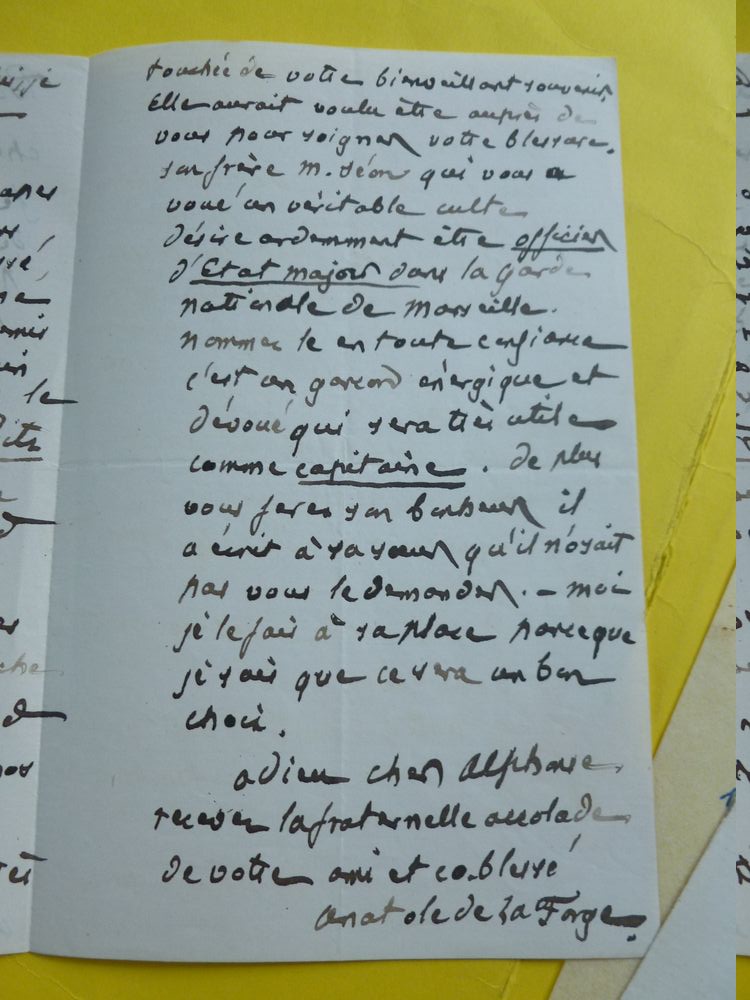 touchée de votre bienveillant souvenir,
Elle aurait voulu être auprès de
vous pour soigner votre blessure.
son frère M. Léon qui vous a
voué un véritable culte
désire ardemment être officier
d'Etat major dans la garde
nationale de Marseille.
nommez le en toute confiance
c'est un garcon énergique et
dévoué qui sera très utile
comme capitaine. De plus
vous ferez son bonheur il
a écrit à sa soeur qu'il n'osait
pas vous le demander. - moi
je le fais à sa place parceque
je sais que ce sera un bon
choix.
adieu cher Alphonse.
recevez la fraternelle accolade
de votre ami et co.blessé
Anatole de La Forge.